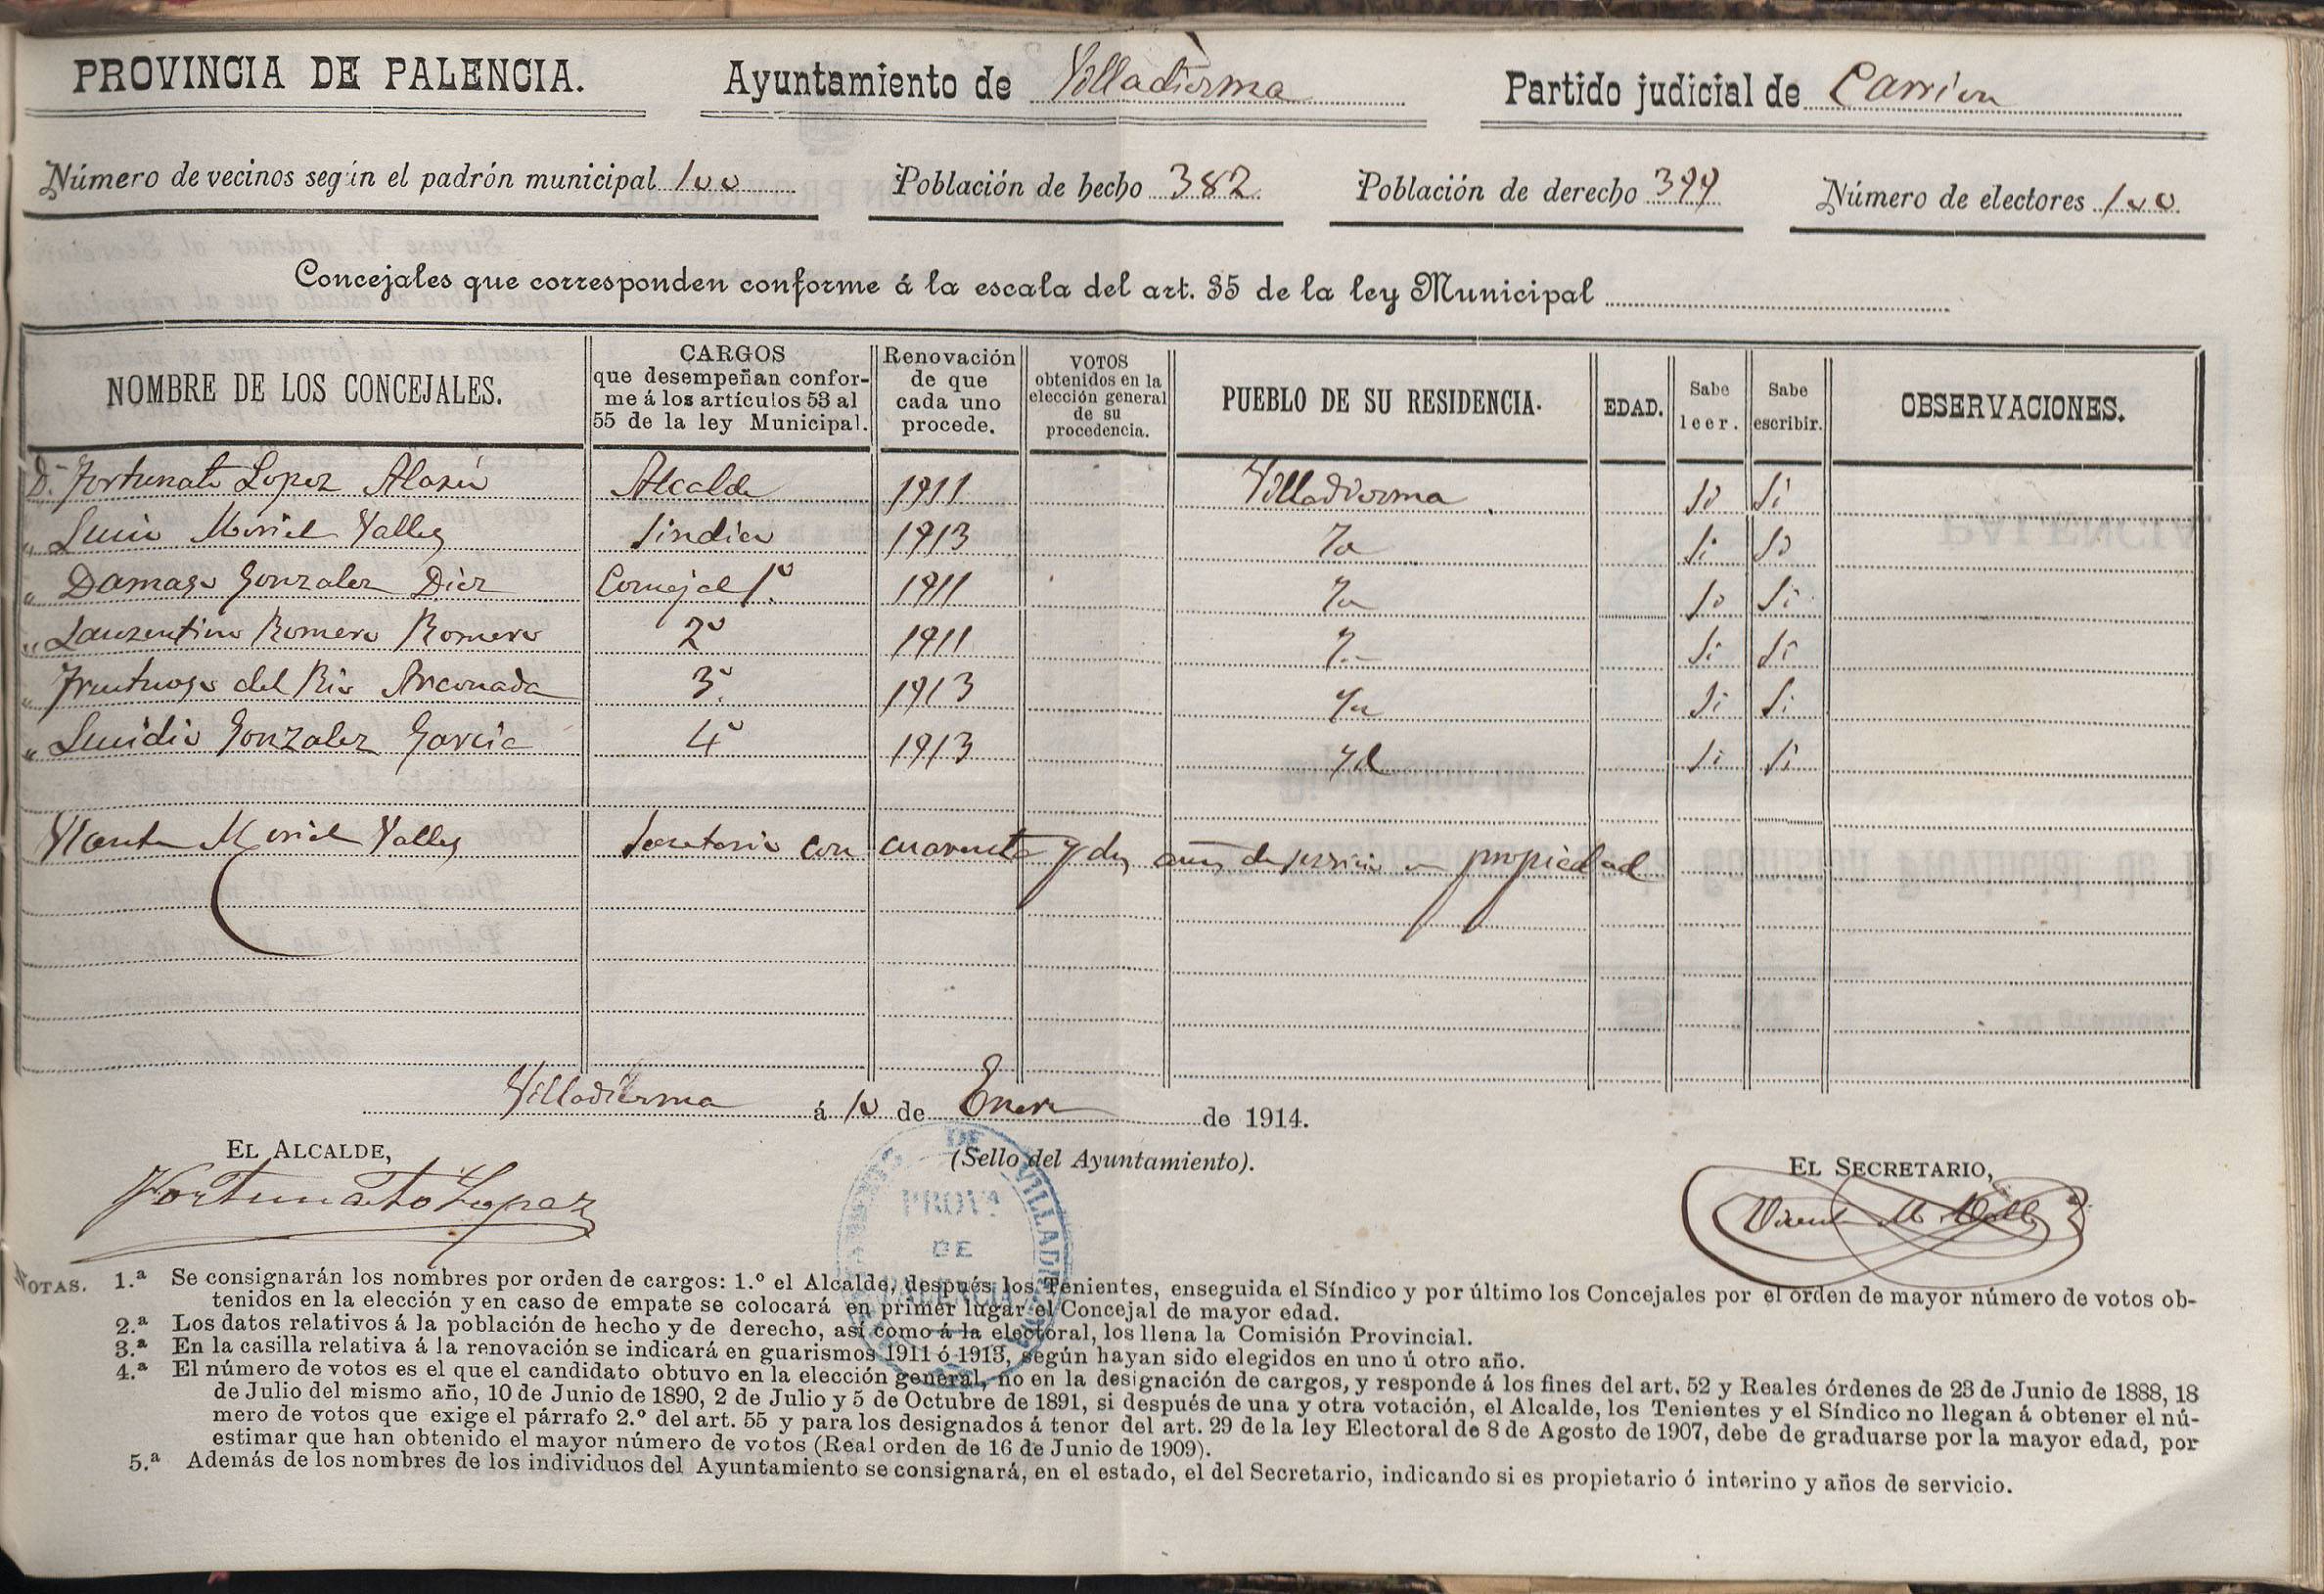 PROVINCIA DE PALENCIA. Ayuntamiento de Villadierma Partido judicial de Carrion
Número de vecinos según el padrón municipal 100 Población de hecho 382 Población de derecho 399 Número de electores 100
Concejales que corresponden conforme á la escala del art. 35 de la ley Municipal
NOMBRE DE LOS CONCEJALES. CARGOS que desempeñan confor-me á los artículos 53 al 55 de la ley Municipal. Renovación de que cada uno procede. VOTOS obtenidos en la elección general de su procedencia. PUEBLO DE SU RESIDENCIA. EDAD. Sabe leer. Sabe escribir. OBSERVACIONES.
D. Fortunato Lopez Alcalde 1911 Villadierma Si Si
" Lucio Moriel Valles Sindico 1913 Si Si
" Damaso Gonzalez Diez Concejal 1º 1911 Si Si
" Laurentino Romero Romero 2º 1911 Si Si
" Fructuoso del Rio Arconada 3º 1913 Si Si
" Lucidio Gonzalez Garcia 4º 1913 Si Si
Vicente Moriel Valles Secretario con cuarenta y dos años de servicio en propiedad
Villadierma á 10 de Enero de 1914.
EL ALCALDE, (Sello del Ayuntamiento). EL SECRETARIO,
Fortunato Lopez Vicente M. Valles
DE VILLADI
PROVª
DE
NOTAS. 1.ª Se consignarán los nombres por orden de cargos: 1.º el Alcalde, después los Tenientes, enseguida el Síndico y por último los Concejales por el orden de mayor número de votos ob-
tenidos en la elección y en caso de empate se colocará en primer lugar el Concejal de mayor edad.
2.ª Los datos relativos á la población de hecho y de derecho, así como á la electoral, los llena la Comisión Provincial.
3.ª En la casilla relativa á la renovación se indicará en guarismos 1911 ó 1913, según hayan sido elegidos en uno ú otro año.
4.ª El número de votos es el que el candidato obtuvo en la elección general, no en la designación de cargos, y responde á los fines del art. 52 y Reales órdenes de 23 de Junio de 1888, 18
de Julio del mismo año, 10 de Junio de 1890, 2 de Julio y 5 de Octubre de 1891, si después de una y otra votación, el Alcalde, los Tenientes y el Síndico no llegan á obtener el nú-
mero de votos que exige el párrafo 2.º del art. 55 y para los designados á tenor del art. 29 de la ley Electoral de 8 de Agosto de 1907, debe de graduarse por la mayor edad, por
estimar que han obtenido el mayor número de votos (Real orden de 16 de Junio de 1909).
5.ª Además de los nombres de los individuos del Ayuntamiento se consignará, en el estado, el del Secretario, indicando si es propietario ó interino y años de servicio.